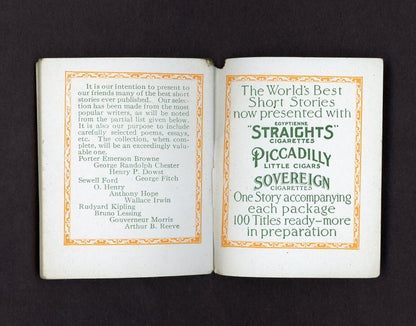 It is our intention to present to
our friends many of the best short
stories ever published. Our selec-
tion has been made from the most
popular writers, as will be noted
from the partial list given below.
It is also our purpose to include
carefully selected poems, essays,
etc. The collection, when com-
plete, will be an exceedingly valu-
able one.
Porter Emerson Browne
George Randolph Chester
Henry P. Dowst
Sewell Ford George Fitch
O. Henry
Anthony Hope
Wallace Irwin
Rudyard Kipling
Bruno Lessing
Gouverneur Morris
Arthur B. Reeve
The World's Best
Short Stories
now presented with
EGYPTIENNE
"STRAIGHTS"
CIGARETTES
PICCADILLY
LITTLE CIGARS
SOVEREIGN
CIGARETTES
One Story accompanying
each package
100 Titles ready-more
in preparation